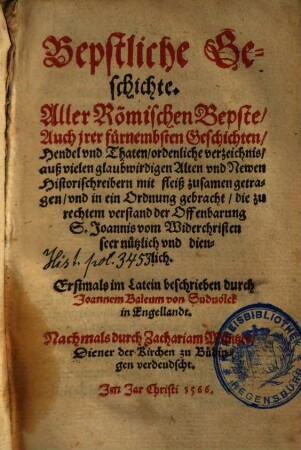 Bepstliche Ge-
schichte.
Aller Römischen Bepste/
Auch jrer fürnembsten Geschichten/
Hendel vnd Thaten/ordenliche verzeichnis/
auß vielen glaubwirdigen Alten vnd Newen
Historischreibern mit fleiß zusamen getra-
gen/vnd in ein Ordnung gebracht/die zu
rechtem verstand der Offenbarung
S. Joannis vom Widerchristen
seer nützlich vnd dien-
lich.
Hist. pol. 345
Erstmals im Latein beschrieben durch
Joannem Baleum von Sudvolck
in Engellandt.
Nachmals durch Zachariam
Diener der Kirchen zu Büdin-
gen verdeudscht.
Im Jar Christi 1566.
KREISBIBLIOTHEK
REGENSBURG